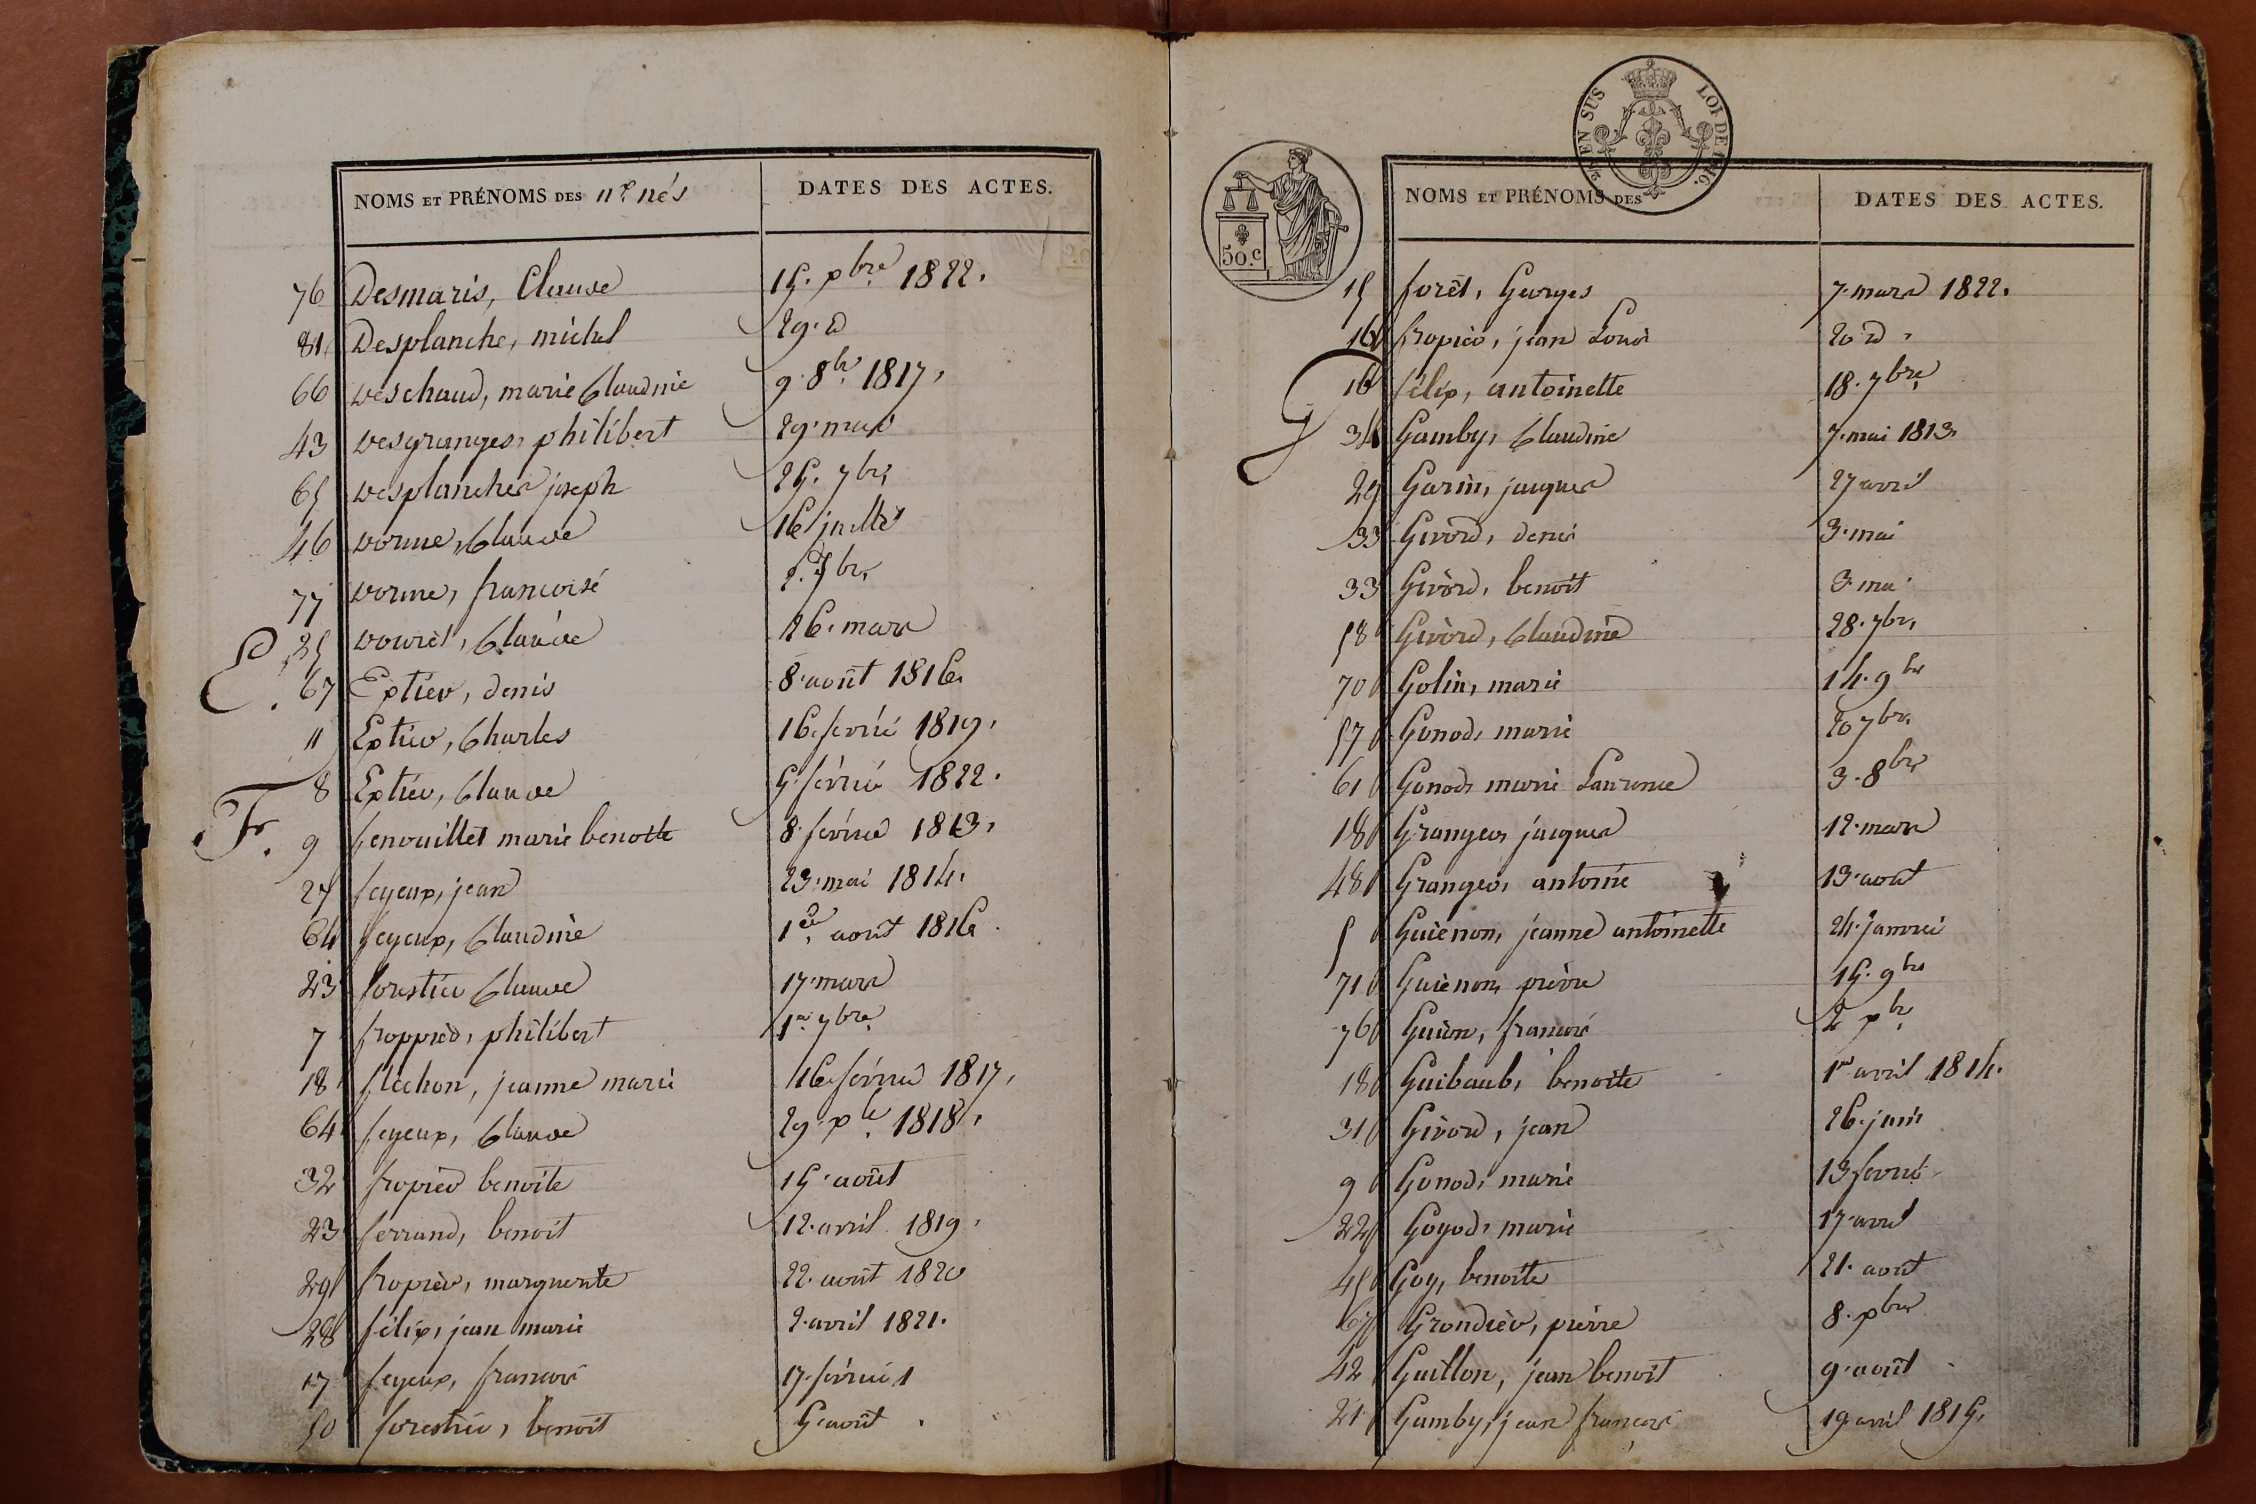 NOMS ET PRÉNOMS DES n.és nés DATES DES ACTES.
76 Desmaris, Claude 15. xbre 1822.
81 Desplanche, michel 29. d
66 Deschaud, marie Claudine 9. 8br. 1817,
43 Desgranges, philibert 29. mai
65 Desplanches joseph 25. 7br.
46 Dorme, Claude 16 juillet
77 Dorme, francoise 2. 7br.
25 Douret, Claude 26. mars
E. 67 Extier, denis 8. août 1816.
11 Extier, Charles 16. fevrié 1819,
8 Extier, Claude 5. févrié 1822.
F. 9 fenouillet marie benoite 8. février 1813,
27 feyeux, jean 23. mai 1814.
64 feyeux, Claudine 1er août 1816.
23 forestier Claude 17. mars
7 froppied, philibert 1er 7bre
18 flechon, jeanne marie 16. février 1817,
64 feyeux, Claude 29. xbr. 1818,
32 fropied benoite 15. août
23 ferrand, benoit 12. avril 1819,
29 fropied, marguerite 22. août 1820
28 félix, jean marie 2. avril 1821.
17 feyeux, francois 17. févrié
50 forestier, benoit 5. août.
EN SUS
LOI DE 1816.
50.c
NOMS ET PRÉNOMS DES DATES DES ACTES.
15 forêt, Georges 7. mars 1822.
16 fropied, jean Louis 20 d.
félix, antoinette 18. 7bre
G 34 Gamby, Claudine 7. mai 1813
29 Garin, jacques 27 avril
33 Givord, denis 3. mai
33 Givord, benoit 3. mai
58 Givord, Claudine 28. 7br.
70 Golin, marie 14. 9br
57 Gonod, marie 20 7br.
61 Gonod, marie Laurence 3. 8br
18 Granger, jacques 12. mars
48 Granger, antoine 13. août
5 Guienon, jeanne antoinette 24. Janvié
71 Guienon, pierre 15. 9bre
76 Guion, francois 2 xbr.
18 Guibaub, benoite 1er avril 1814.
31 Givord, jean 26. juin
9 Gonod, marie 13 fevrié
22 Goyod, marie 17. avril
45 Goy, benoite 21. août
67 Grondier, pierre 8. xbre
42 Guillon, jean benoit 9. août
21 Gamby, jean francois 19 avril 1815,